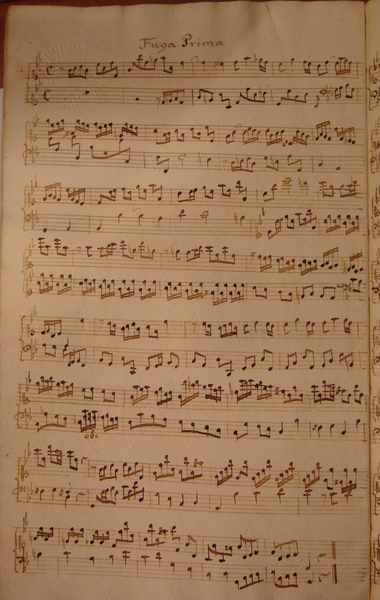 Fuga Prima